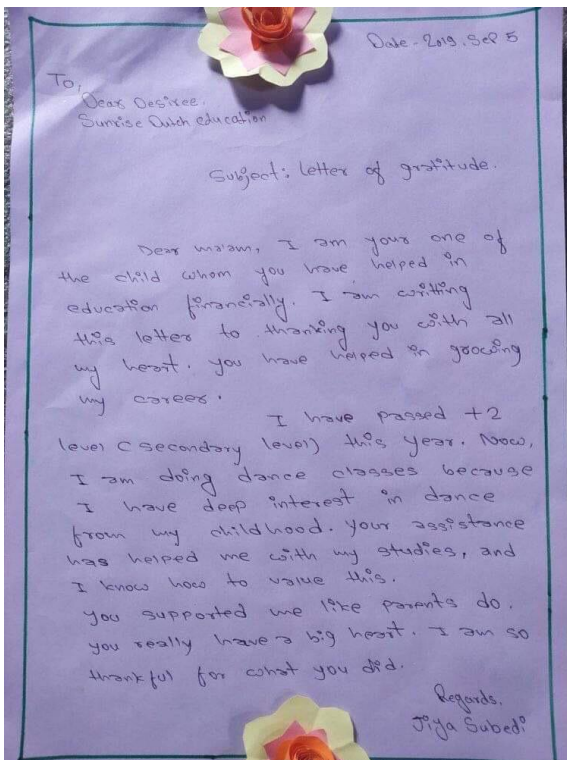 Date - 2019, Sep 5
To,
Dear Desiree.
Sunrise Dutch education
Subject: Letter of gratitude.
Dear ma'am, I am your one of
the child whom you have helped in
education financially. I am writting
this letter to thanking you with all
my heart. you have helped in growing
my career.
I have passed +2
level (secondary level) this year. Now,
I am doing dance classes because
I have deep interest in dance
from my childhood. your assistance
has helped me with my studies, and
I know how to value this.
you supported me like parents do.
you really have a big heart. I am so
thankful for what you did.
Regards.
Jiya Subedi